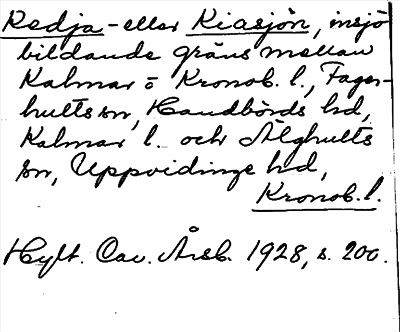 Redja- eller Kiasjön, insjö
bildande gräns mellan
Kalmar o Kronob. l., Fager-
hults sn, Handbörds hd,
Kalmar l. och Älghults
sn, Uppvidinge hd,
Kronob. l.
Hylt. Cav. Årsb. 1928, s. 200.